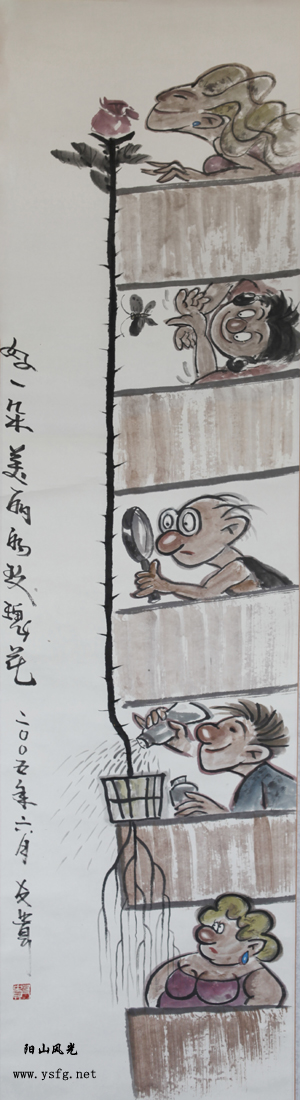 好一朵美丽的玫瑰花
二〇〇五年六月
阳山风光
www.ysfg.net